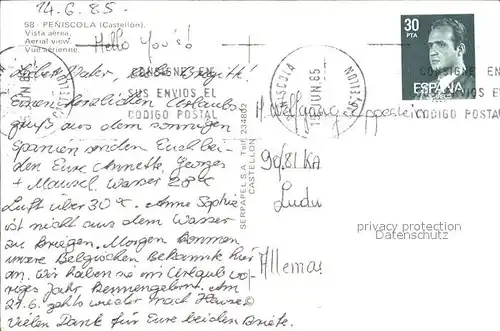 14.6.85.
58 - PEÑISCOLA (Castellón).
Vista aérea.
Aerial view.
Vue aérienne.
Hello You's!
Lieber Vater, liebe Birgitt!
Einen herzlichen Urlaubs
gruß aus dem sonnigen
Spanien senden Euch bei
den Eure Annette, Georges
+ Mausel. Wasser 28°C
Luft über 30°C. Anne Sophie
ist nicht aus dem Wasser
zu kriegen. Morgen kommen
unsere Belgischen Bekannte hier
an. Wir haben sie im Urlaub vo-
riges Jahr kennengelernt. Am
29.6. geht's wieder nach Hause.
Vielen Dank für Eure beiden Briefe.
SERPAPEL S.A. Telf. 234802
CASTELLON
30
PTA
ESPAÑA
CONSIGNE EN
SUS ENVIOS EL
CODIGO POSTAL
PEÑISCOLA
JUN. 85
CASTELLON
CONSIGNE EN
ENVIOS EL
CODIGO POSTAL
Wolfgang
KA
Ludu
Allemas
privacy protection
Datenschutz
©